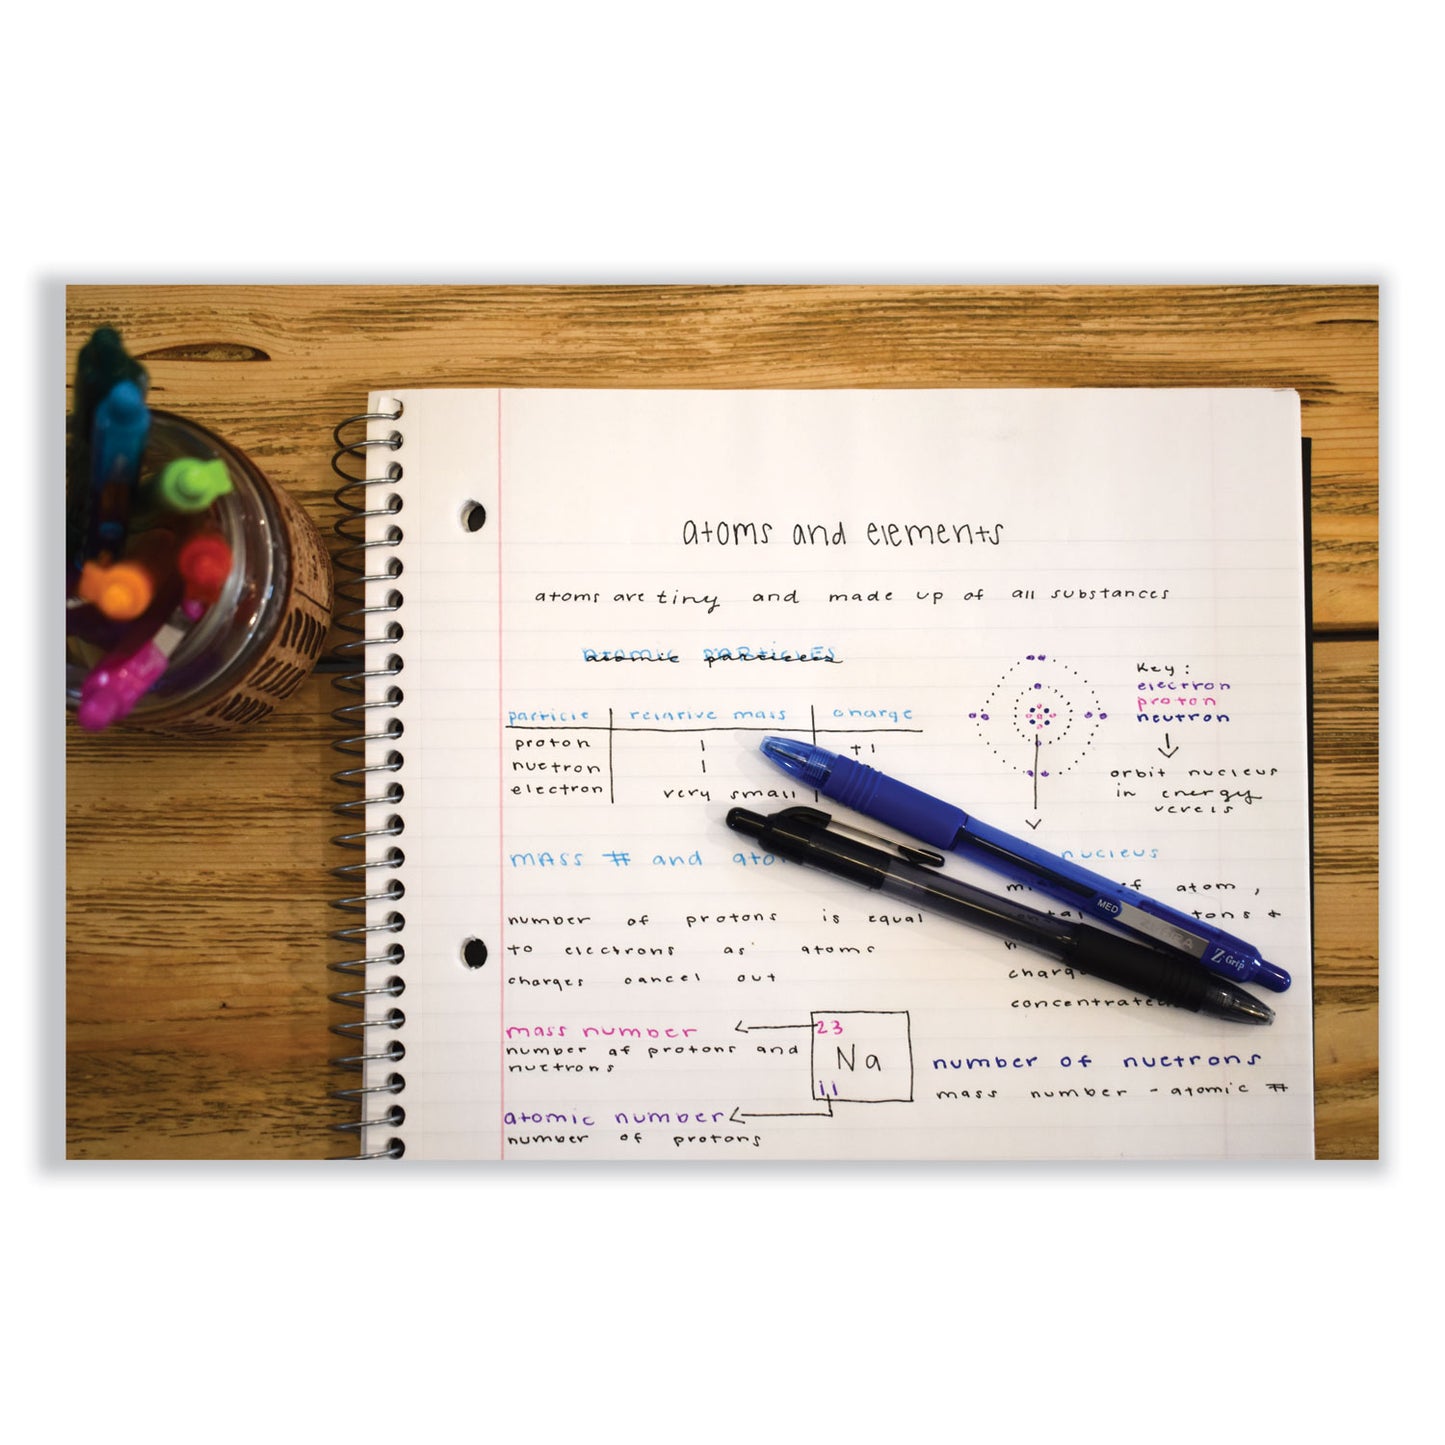 atoms and elements
atoms are tiny and made up of all substances
atomic particles
particle relative mass charge
proton 1 +1
nuetron 1
electron very small
Key:
electron
proton
neutron
orbit nucleus
in energy
MASS # and
nucleus
of atom,
number of protons is equal
to electrons as atoms
charges cancel out
mass number
number of protons and
nuetrons
23
Na
11
atomic number
number of protons
number of nuetrons
mass number - atomic #
MED
ZEBRA
Z Grip